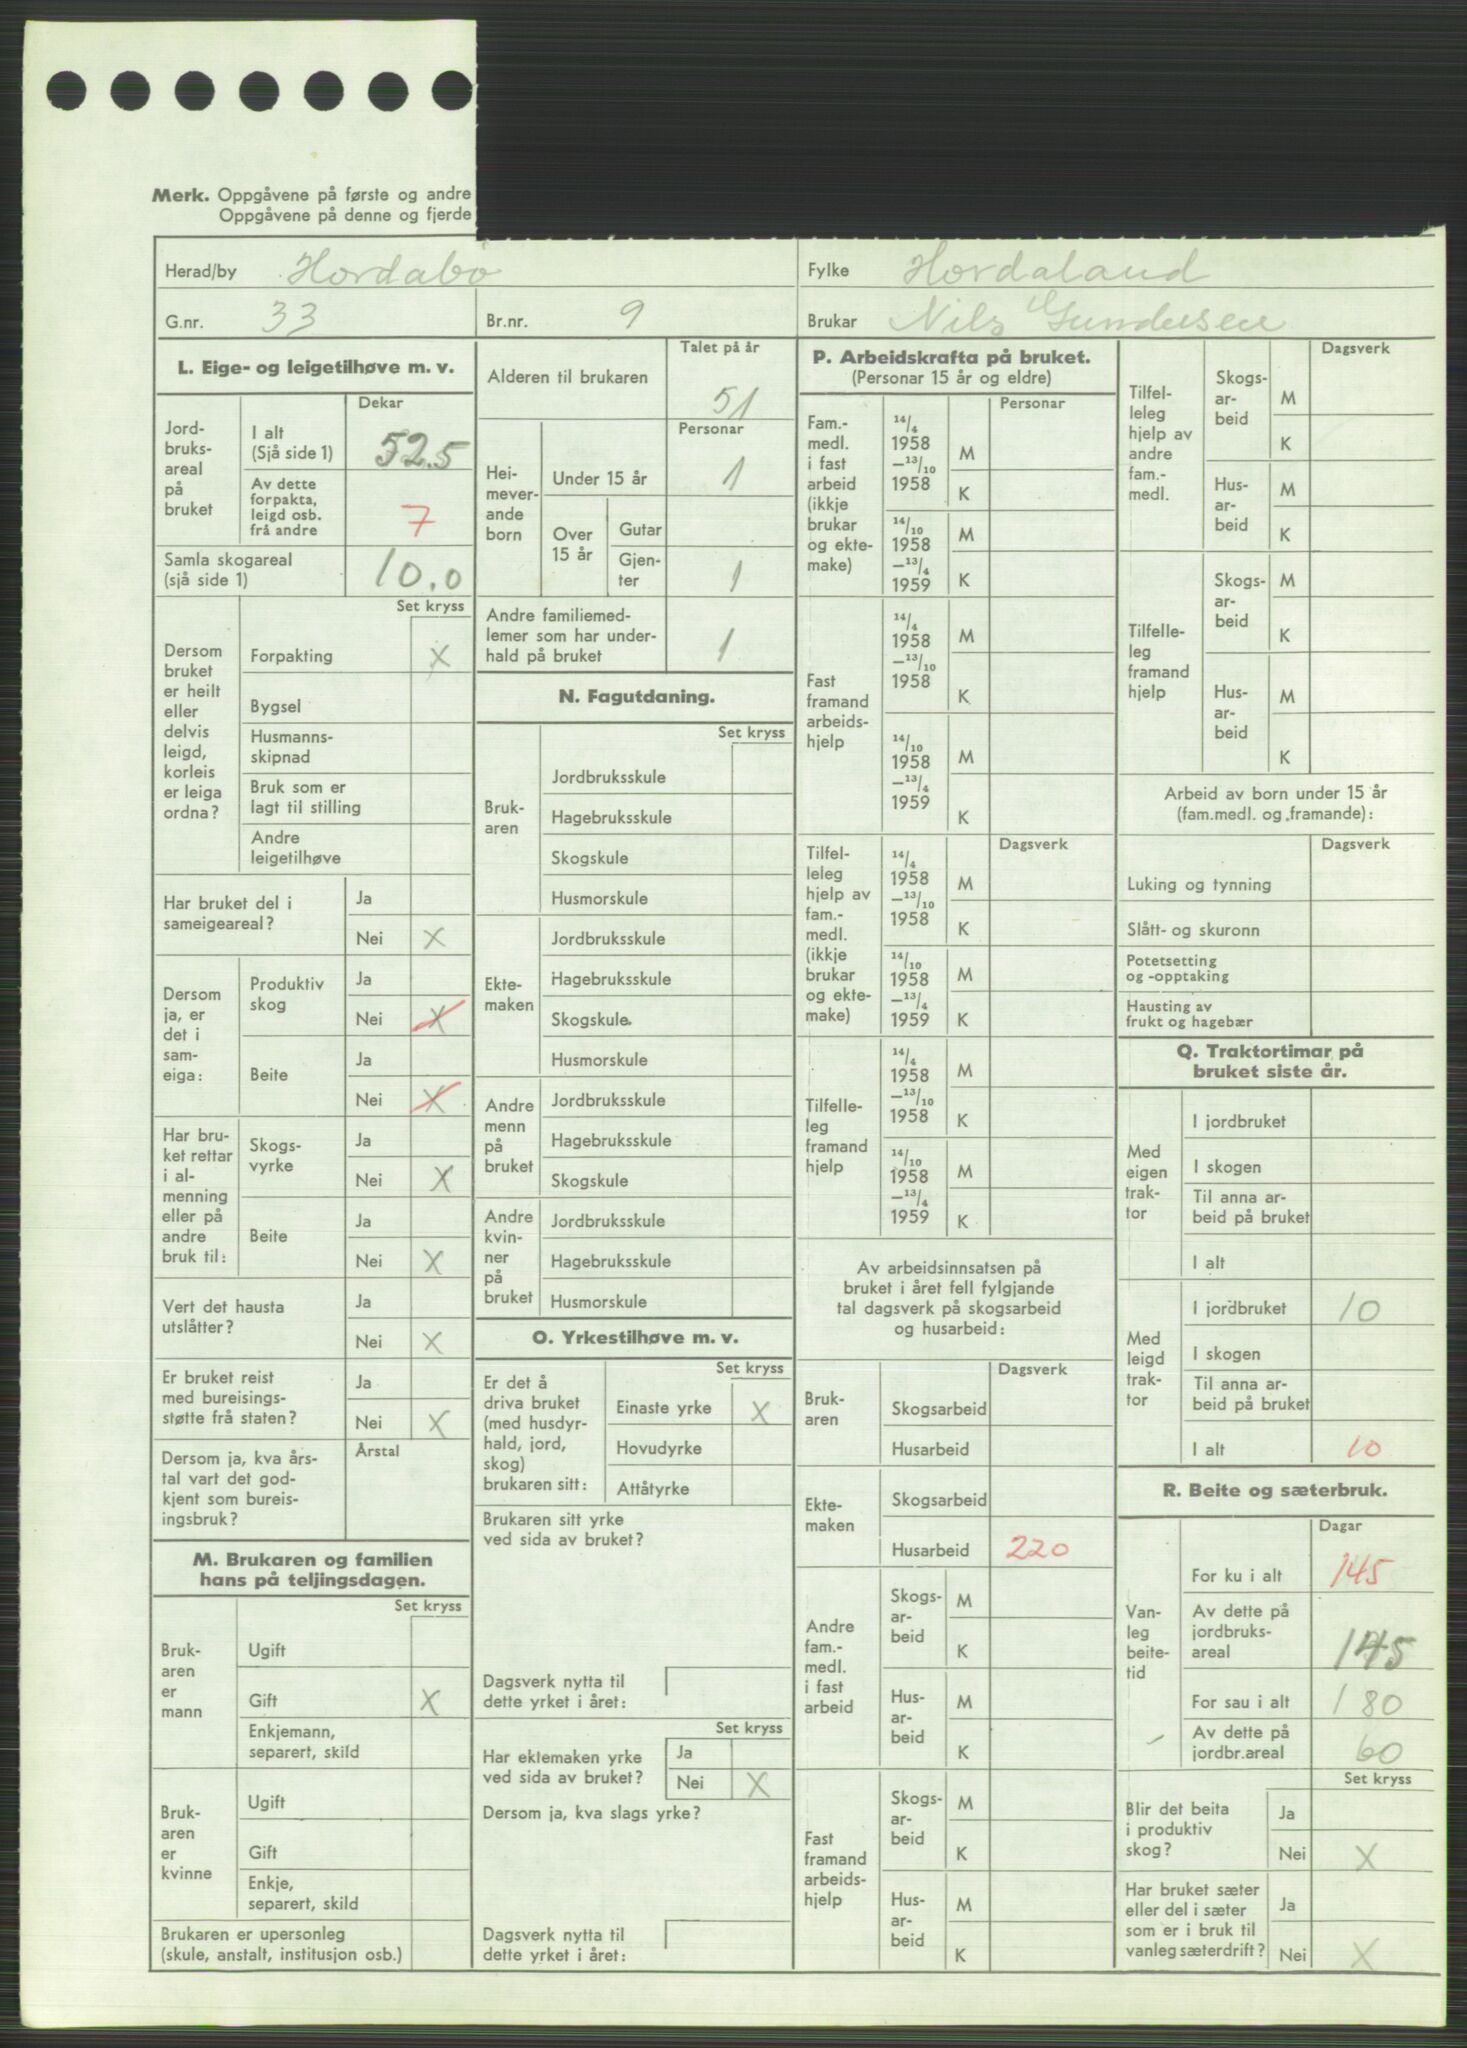 Merk. Oppgåvene på første og andre
Oppgåvene på denne og fjerde
Herad/by Hordabø
Fylke Hordaland
G.nr. 33
Br.nr. 9
Brukar Nils Gundersen
L. Eige- og leigetilhøve m. v.
Dekar
Jord-
bruks-
areal
på
bruket
I alt
(Sjå side 1) 52.5
Av dette
forpakta,
leigd osb.
frå andre 7
Samla skogareal
(sjå side 1) 10.0
Set kryss
Dersom
bruket
er heilt
eller
delvis
leigd,
korleis
er leiga
ordna?
Forpakting X
Bygsel
Husmanns-
skipnad
Bruk som er
lagt til stilling
Andre
leigetilhøve
Har bruket del i
sameigeareal?
Ja
Nei X
Dersom
ja, er
det i
sam-
eiga:
Produktiv
skog
Ja
Nei X
Beite
Ja
Nei X
Har bru-
ket rettar
i al-
menning
eller på
andre
bruk til:
Skogs-
vyrke
Ja
Nei X
Beite
Ja
Nei X
Vert det hausta
utslåtter?
Ja
Nei X
Er bruket reist
med bureisings-
støtte frå staten?
Ja
Nei X
Dersom ja, kva års-
tal vart det god-
kjent som bureis-
ingsbruk?
Årstal
M. Brukaren og familien
hans på teljingsdagen.
Set kryss
Bruk-
aren
er
mann
Ugift
Gift X
Enkjemann,
separert, skild
Bruk-
aren
er
kvinne
Ugift
Gift
Enkje,
separert, skild
Brukaren er upersonleg
(skule, anstalt, institusjon osb.)
Talet på år
Alderen til brukaren 51
Personar
Hei-
mever-
ande
born
Under 15 år 1
Over
15 år
Gutar
Gjen-
ter 1
Andre familiemed-
lemer som har under-
hald på bruket 1
N. Fagutdaning.
Set kryss
Bruk-
aren
Jordbruksskule
Hagebruksskule
Skogskule
Husmorskule
Ekte-
maken
Jordbruksskule
Hagebruksskule
Skogskule
Husmorskule
Andre
menn
på
bruket
Jordbruksskule
Hagebruksskule
Skogskule
Andre
kvin-
ner
på
bruket
Jordbruksskule
Hagebruksskule
Husmorskule
O. Yrkestilhøve m. v.
Set kryss
Er det å
driva bruket
(med husdyr-
hald, jord,
skog)
brukaren sitt:
Einaste yrke X
Hovudyrke
Attåtyrke
Brukaren sitt yrke
ved sida av bruket?
Dagsverk nytta til
dette yrket i året:
Set kryss
Har ektemaken yrke
ved sida av bruket?
Ja
Nei X
Dersom ja, kva slags yrke?
Dagsverk nytta til
dette yrket i året:
P. Arbeidskrafta på bruket.
(Personar 15 år og eldre)
Personar
Fam.-
medl.
i fast
arbeid
(ikkje
brukar
og ekte-
make)
14/4
1958
—13/10
1958
M
K
14/10
1958
—13/4
1959
M
K
Fast
framand
arbeids-
hjelp
14/4
1958
—13/10
1958
M
K
14/10
1958
—13/4
1959
M
K
Dagsverk
Tilfel-
leleg
hjelp av
fam.-
medl.
(ikkje
brukar
og ekte-
make)
14/4
1958
—13/10
1958
M
K
14/10
1958
—13/4
1959
M
K
Tilfelle-
leg
framand
hjelp
14/4
1958
—13/10
1958
M
K
14/10
1958
—13/4
1959
M
K
Av arbeidsinnsatsen på
bruket i året fell fylgjande
tal dagsverk på skogsarbeid
og husarbeid:
Dagsverk
Bruk-
aren
Skogsarbeid
Husarbeid
Ekte-
maken
Skogsarbeid
Husarbeid 220
Andre
fam.-
medl.
i fast
arbeid
Skogs-
ar-
beid
M
K
Hus-
ar-
beid
M
K
Fast
framand
arbeids-
hjelp
Skogs-
ar-
beid
M
K
Hus-
ar-
beid
M
K
Dagsverk
Tilfel-
leleg
hjelp av
andre
fam.-
medl.
Skogs-
ar-
beid
M
K
Hus-
ar-
beid
M
K
Tilfelle-
leg
framand
hjelp
Skogs-
ar-
beid
M
K
Hus-
ar-
beid
M
K
Arbeid av born under 15 år
(fam.medl. og framande):
Dagsverk
Luking og tynning
Slått- og skuronn
Potetsetting
og -opptaking
Hausting av
frukt og hagebær
Q. Traktortimar på
bruket siste år.
Med
eigen
trak-
tor
I jordbruket
I skogen
Til anna ar-
beid på bruket
I alt
Med
leigd
trak-
tor
I jordbruket 10
I skogen
Til anna ar-
beid på bruket
I alt 10
R. Beite og sæterbruk.
Dagar
Van-
leg
beite-
tid
For ku i alt 145
Av dette på
jordbruks-
areal 145
For sau i alt 180
Av dette på
jordbr.areal 60
Set kryss
Blir det beita
i produktiv
skog?
Ja
Nei X
Har bruket sæter
eller del i sæter
som er i bruk til
vanleg sæterdrift?
Ja
Nei X